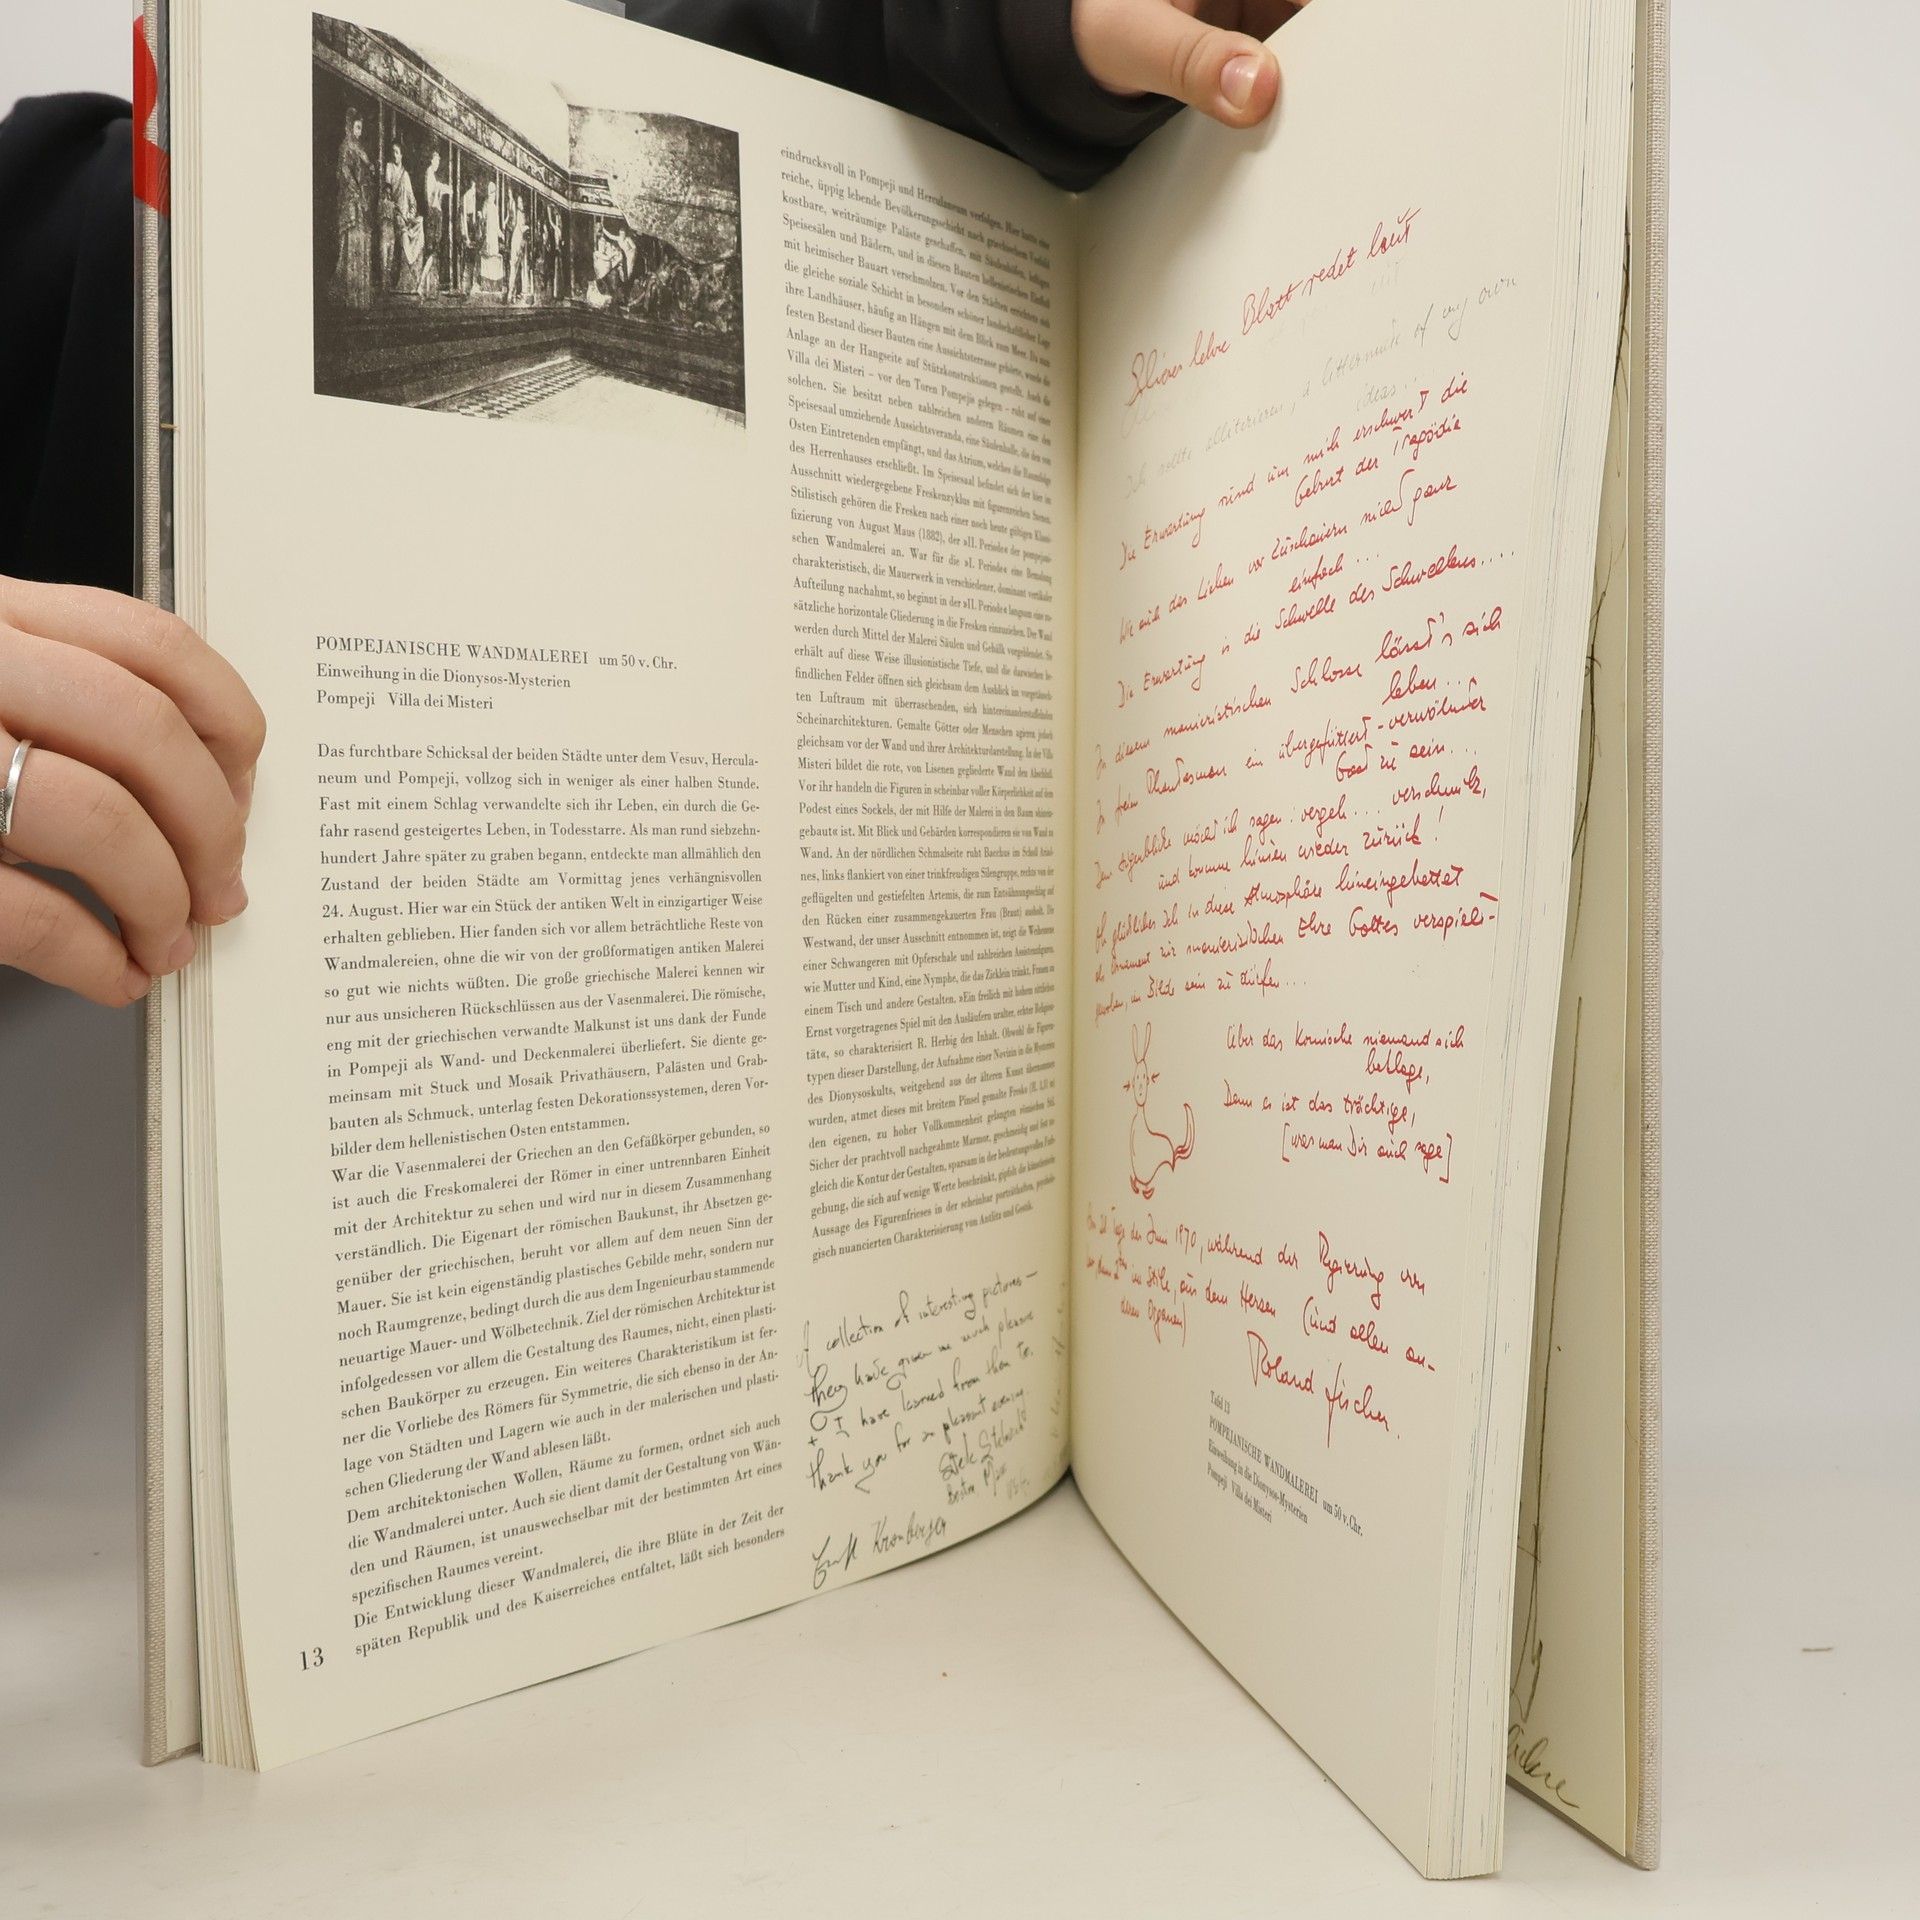 POMPEJANISCHE WANDMALEREI um 50 v. Chr.
Einweihung in die Dionysos-Mysterien
Pompeji Villa dei Misteri
Das furchtbare Schicksal der beiden Städte unter dem Vesuv, Hercula-
neum und Pompeji, vollzog sich in weniger als einer halben Stunde.
Fast mit einem Schlag verwandelte sich ihr Leben, ein durch die Ge-
fahr rasend gesteigertes Leben, in Todesstarre. Als man rund siebzehn-
hundert Jahre später zu graben begann, entdeckte man allmählich den
Zustand der beiden Städte am Vormittag jenes verhängnisvollen
24. August. Hier war ein Stück der antiken Welt in einzigartiger Weise
erhalten geblieben. Hier fanden sich vor allem beträchtliche Reste von
Wandmalereien, ohne die wir von der großformatigen antiken Malerei
so gut wie nichts wüßten. Die große griechische Malerei kennen wir
nur aus unsicheren Rückschlüssen aus der Vasenmalerei. Die römische,
eng mit der griechischen verwandte Malkunst ist uns dank der Funde
in Pompeji als Wand- und Deckenmalerei überliefert. Sie diente ge-
meinsam mit Stuck und Mosaik Privathäusern, Palästen und Grab-
bauten als Schmuck, unterlag festen Dekorationssystemen, deren Vor-
bilder dem hellenistischen Osten entstammen.
War die Vasenmalerei der Griechen an den Gefäßkörper gebunden, so
ist auch die Freskomalerei der Römer in einer untrennbaren Einheit
mit der Architektur zu sehen und wird nur in diesem Zusammenhang
verständlich. Die Eigenart der römischen Baukunst, ihr Absetzen ge-
genüber der griechischen, beruht vor allem auf dem neuen Sinn der
Mauer. Sie ist kein eigenständig plastisches Gebilde mehr, sondern nur
noch Raumgrenze, bedingt durch die aus dem Ingenieurbau stammende
neuartige Mauer- und Wölbetechnik. Ziel der römischen Architektur ist
infolgedessen vor allem die Gestaltung des Raumes, nicht, einen plasti-
schen Baukörper zu erzeugen. Ein weiteres Charakteristikum ist fer-
ner die Vorliebe des Römers für Symmetrie, die sich ebenso in der An-
lage von Städten und Lagern wie auch in der malerischen und plasti-
schen Gliederung der Wand ablesen läßt.
Dem architektonischen Wollen, Räume zu formen, ordnet sich auch
die Wandmalerei unter. Auch sie dient damit der Gestaltung von Wän-
den und Räumen, ist unauswechselbar mit der bestimmten Art eines
spezifischen Raumes vereint.
Die Entwicklung dieser Wandmalerei, die ihre Blüte in der Zeit der
späten Republik und des Kaiserreiches entfaltet, läßt sich besonders
13
eindrucksvoll in Pompeji und Herculaneum verfolgen. Hier hatte eine
reiche, üppig lebende Bevölkerungsschicht nach griechischem Vorbild
kostbare, weiträumige Paläste geschaffen, mit Säulenhöfen,
Speisesälen und Bädern, und in diesen Bauten hellenistischen Einfluß
mit heimischer Bauart verschmolzen. Vor den Städten errichtete sich
die gleiche soziale Schicht in besonders schöner landschaftlicher Lage
ihre Landhäuser, häufig an Hängen mit dem Blick zum Meer. Da zum
festen Bestand dieser Bauten eine Aussichtsterrasse gehörte, wurde die
Anlage an der Hangseite auf Stützkonstruktionen gestellt. Auch die
Villa dei Misteri – vor den Toren Pompejis gelegen – ruht auf einer
solchen. Sie besitzt neben zahlreichen anderen Räumen eine den
Speisesaal umziehende Aussichtsveranda, eine Säulenhalle, die den von
Osten Eintretenden empfängt, und das Atrium, welches die Raumfolge
des Herrenhauses erschließt. Im Speisesaal befindet sich der hier im
Ausschnitt wiedergegebene Freskenzyklus mit figurenreichen Szenen.
Stilistisch gehören die Fresken nach einer noch heute gültigen Klassi-
fizierung von August Maus (1882), der »II. Periode« der pompejani-
schen Wandmalerei an. War für die »I. Periode« eine Bemalung
charakteristisch, die Mauerwerk in verschiedener, dominant vertikaler
Aufteilung nachahmt, so beginnt in der »II. Periode« langsam eine zu-
sätzliche horizontale Gliederung in die Fresken einzuziehen. Der Wand
werden durch Mittel der Malerei Säulen und Gebälk vorgeblendet. So
erhält auf diese Weise illusionistische Tiefe, und die darzwischen be-
findlichen Felder öffnen sich gleichsam dem Ausblick im vorgetäusch-
ten Luftraum mit überraschenden, sich hintereinanderstaffelnden
Scheinarchitekturen. Gemalte Götter oder Menschen agieren jedoch
gleichsam vor der Wand und ihrer Architekturdarstellung. In der Villa
Misteri bildet die rote, von Lisenen gegliederte Wand den Abschluß.
Vor ihr handeln die Figuren in scheinbar voller Körperlichkeit auf dem
Podest eines Sockels, der mit Hilfe der Malerei in den Raum »hinein-
gebaut« ist. Mit Blick und Gebärden korrespondieren sie von Wand zu
Wand. An der nördlichen Schmalseite ruht Bacchus im Schoß Ariad-
nes, links flankiert von einer trinkfreudigen Silengruppe, rechts von der
geflügelten und gestiefelten Artemis, die zum Entsühnungsschlag auf
den Rücken einer zusammengekauerten Frau (Braut) ausholt. Die
Westwand, der unser Ausschnitt entnommen ist, zeigt die
einer Schwangeren mit Opferschale und zahlreichen Assistenzfiguren,
wie Mutter und Kind, eine Nymphe, die das Zicklein tränkt, Frauen an
einem Tisch und andere Gestalten. »Ein freilich mit hohem sittlichen
Ernst vorgetragenes Spiel mit den Ausläufern uralter, echter Religiosi-
tät«, so charakterisiert R. Herbig den Inhalt. Obwohl die Figuren-
typen dieser Darstellung, der Aufnahme einer Novizin in die Mysterien
des Dionysoskults, weitgehend aus der älteren Kunst übernommen
wurden, atmet dieses mit breitem Pinsel gemalte Fresko
den eigenen, zu hoher Vollkommenheit gelangten römischen Stil.
Sicher der prachtvoll nachgeahmte Marmor, geschmeidig und fest zu-
gleich die Kontur der Gestalten, sparsam in der bedeutungsvollen Farb-
gebung, die sich auf wenige Werte beschränkt, gipfelt die künstlerische
Aussage des Figurenfrieses in der scheinbar porträthaften, psycholo-
gisch nuancierten Charakterisierung von Antlitz und Gestik.
collection of interesting pictures –
they have given me much pleasure
+ I have learned from them to.
thank you for a pleasant evening.
Ernst Kronberger
Blatt redet laut
of my own
ideas..
Die Erwartung rund um mich erschwert die
Geburt der Tragödie
Wie auch das Lieben vor Zuschauern nicht ganz
einfach ...
Die Erwartung is die Schwelle des Schwellens....
In diesem manieristischen Schlosse lässt's sich
leben...
In freien Phantasmen ein übergefüttert-verwöhnter
Gast zu sein...
Dem Augenblicke möcht ich sagen: vergeh... verschmitz,
und komme hinten wieder zurück!
Oh glückliches Ich in diese Atmosphäre hineingebettet
als Ornament zur manieristischen Ehre Gottes verspielt-
gewoben, im Bilde sein zu dürfen...
Über das Komische niemand sich
beklage,
Denn es ist das trächtige,
[was man Dir auch sage]
Juni 1970, während der Regierung von
im Stile, aus dem Herzen (und allen an-
deren Organen)
Roland Fischer.
Tafel 13
POMPEJANISCHE WANDMALEREI um 50 v. Chr.
Einweihung in die Dionysos-Mysterien
Pompeji Villa dei Misteri